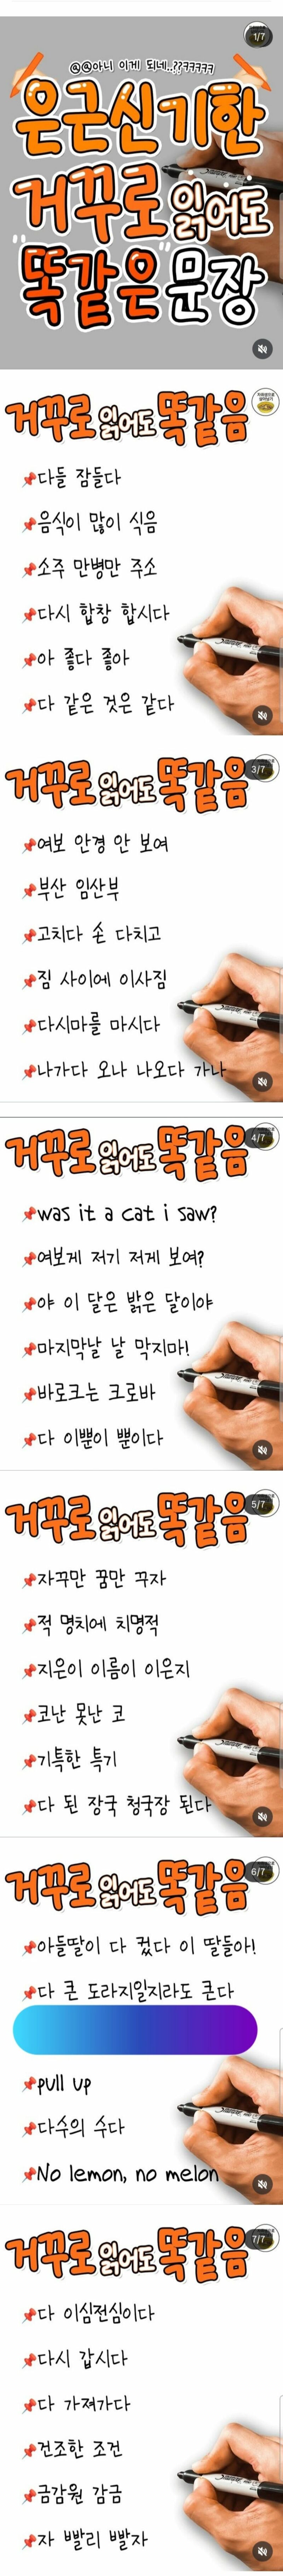 1/7
@@아니 이게 되네..??ㅋㅋㅋㅋㅋ
은근신기한
거꾸로 읽어도
"똑같은"문장
거꾸로 읽어도 똑같음
📌다들 잠들다
📌음식이 많이 식음
📌소주 만병만 주소
📌다시 합창 합시다
📌아 좋다 좋아
📌다 같은 것은 같다
거꾸로 읽어도 똑같음
3/7
📌여보 안경 안 보여
📌부산 임산부
📌고치다 손 다치고
📌짐 사이에 이사짐
📌다시마를 마시다
📌나가다 오나 나오다 가나
거꾸로 읽어도 똑같음
4/7
📌was it a cat i saw?
📌여보게 저기 저게 보여?
📌야 이 달은 밝은 달이야
📌마지막날 날 막지마!
📌바로크는 크로바
📌다 이뿐이 뿐이다
거꾸로 읽어도 똑같음
5/7
📌자꾸만 꿈만 꾸자
📌적 명치에 치명적
📌지은이 이름이 이은지
📌코난 못난 코
📌기특한 특기
📌다 된 장국 청국장 된다
거꾸로 읽어도 똑같음
6/7
📌아들딸이 다 컸다 이 딸들아!
📌다 큰 도라지일지라도 큰다
📌pull up
📌다수의 수다
📌No lemon, no melon
거꾸로 읽어도 똑같음
7/7
📌다 이심전심이다
📌다시 갑시다
📌다 가져가다
📌건조한 조건
📌금감원 감금
📌자 빨리 빨자